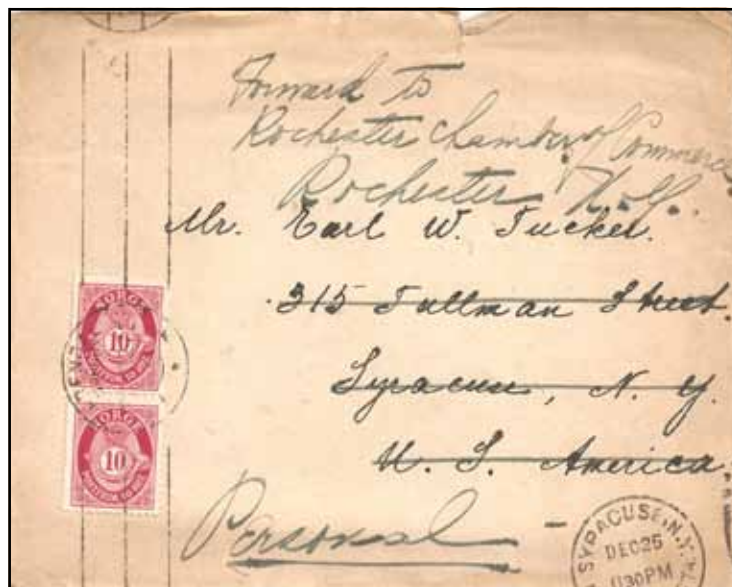 Forward to
Rochester Chamber of Commerce
Rochester N.Y.
Mr. Earl W. Tucker.
315 Tallman Street.
Syracuse, N. Y.
U. S. America
NORGE
10
NORGE
10
Personal
SYRACUSE, N.Y.
DEC 25
1130PM